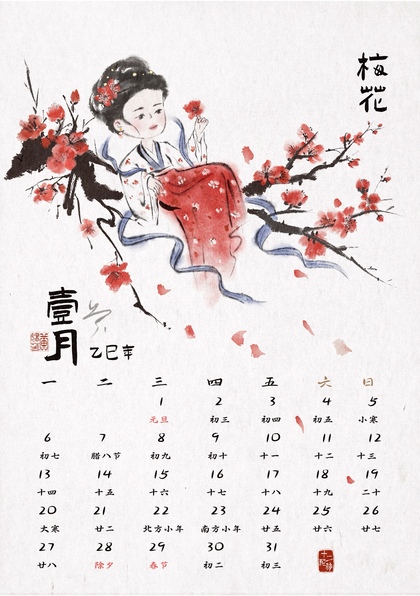 梅花
壹月
乙巳年
一 二 三 四 五 六 日
1 2 3 4 5
元旦 初三 初四 初五 小寒
6 7 8 9 10 11 12
初七 腊八节 初九 初十 十一 十二 十三
13 14 15 16 17 18 19
十四 十五 十六 十七 十八 十九 二十
20 21 22 23 24 25 26
大寒 廿二 北方小年 南方小年 廿五 廿六 廿七
27 28 29 30 31
廿八 除夕 春节 初二 初三